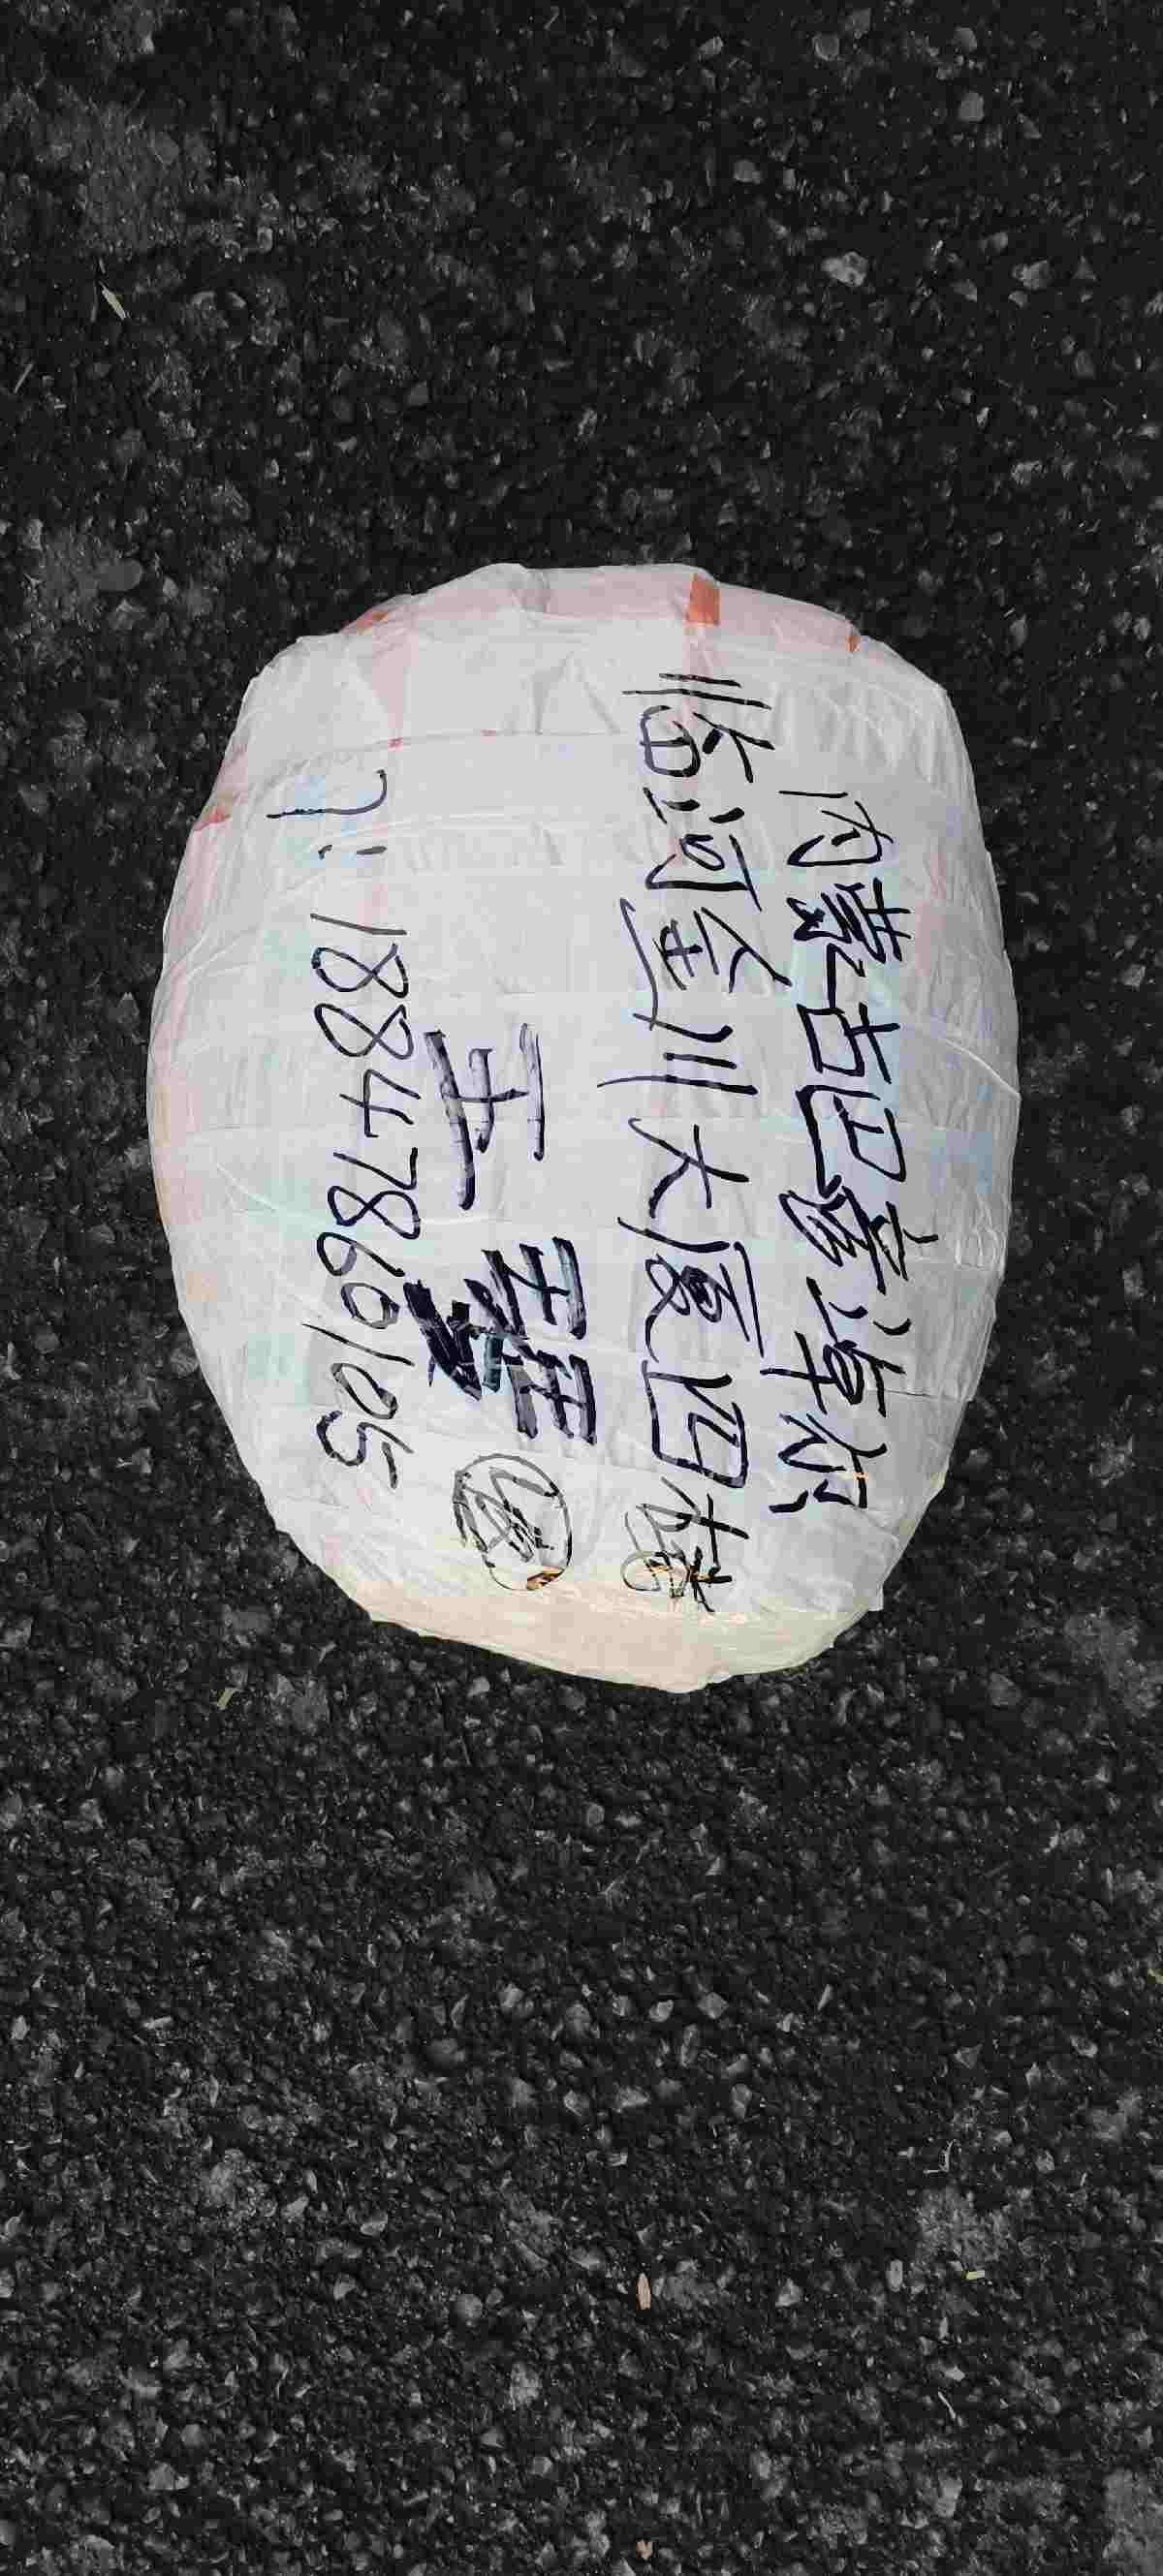 内蒙古巴彦淖尔
临河金川大厦四楼
王
T: 18847860105